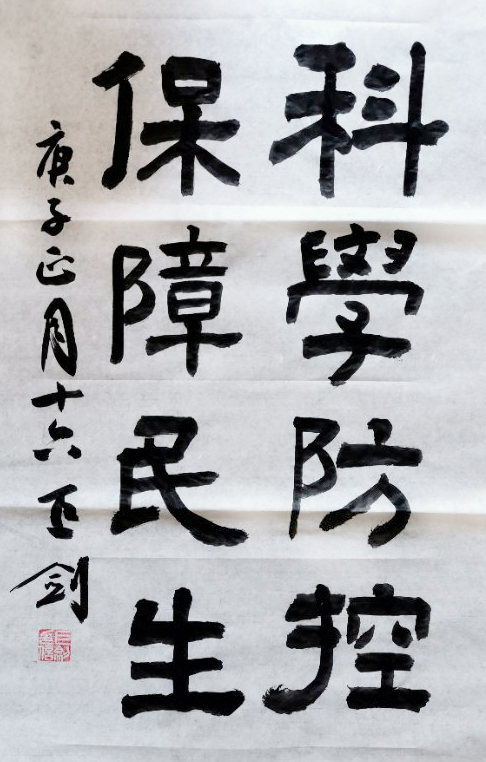 科學防控
保障民生
庚子正月十六 剑